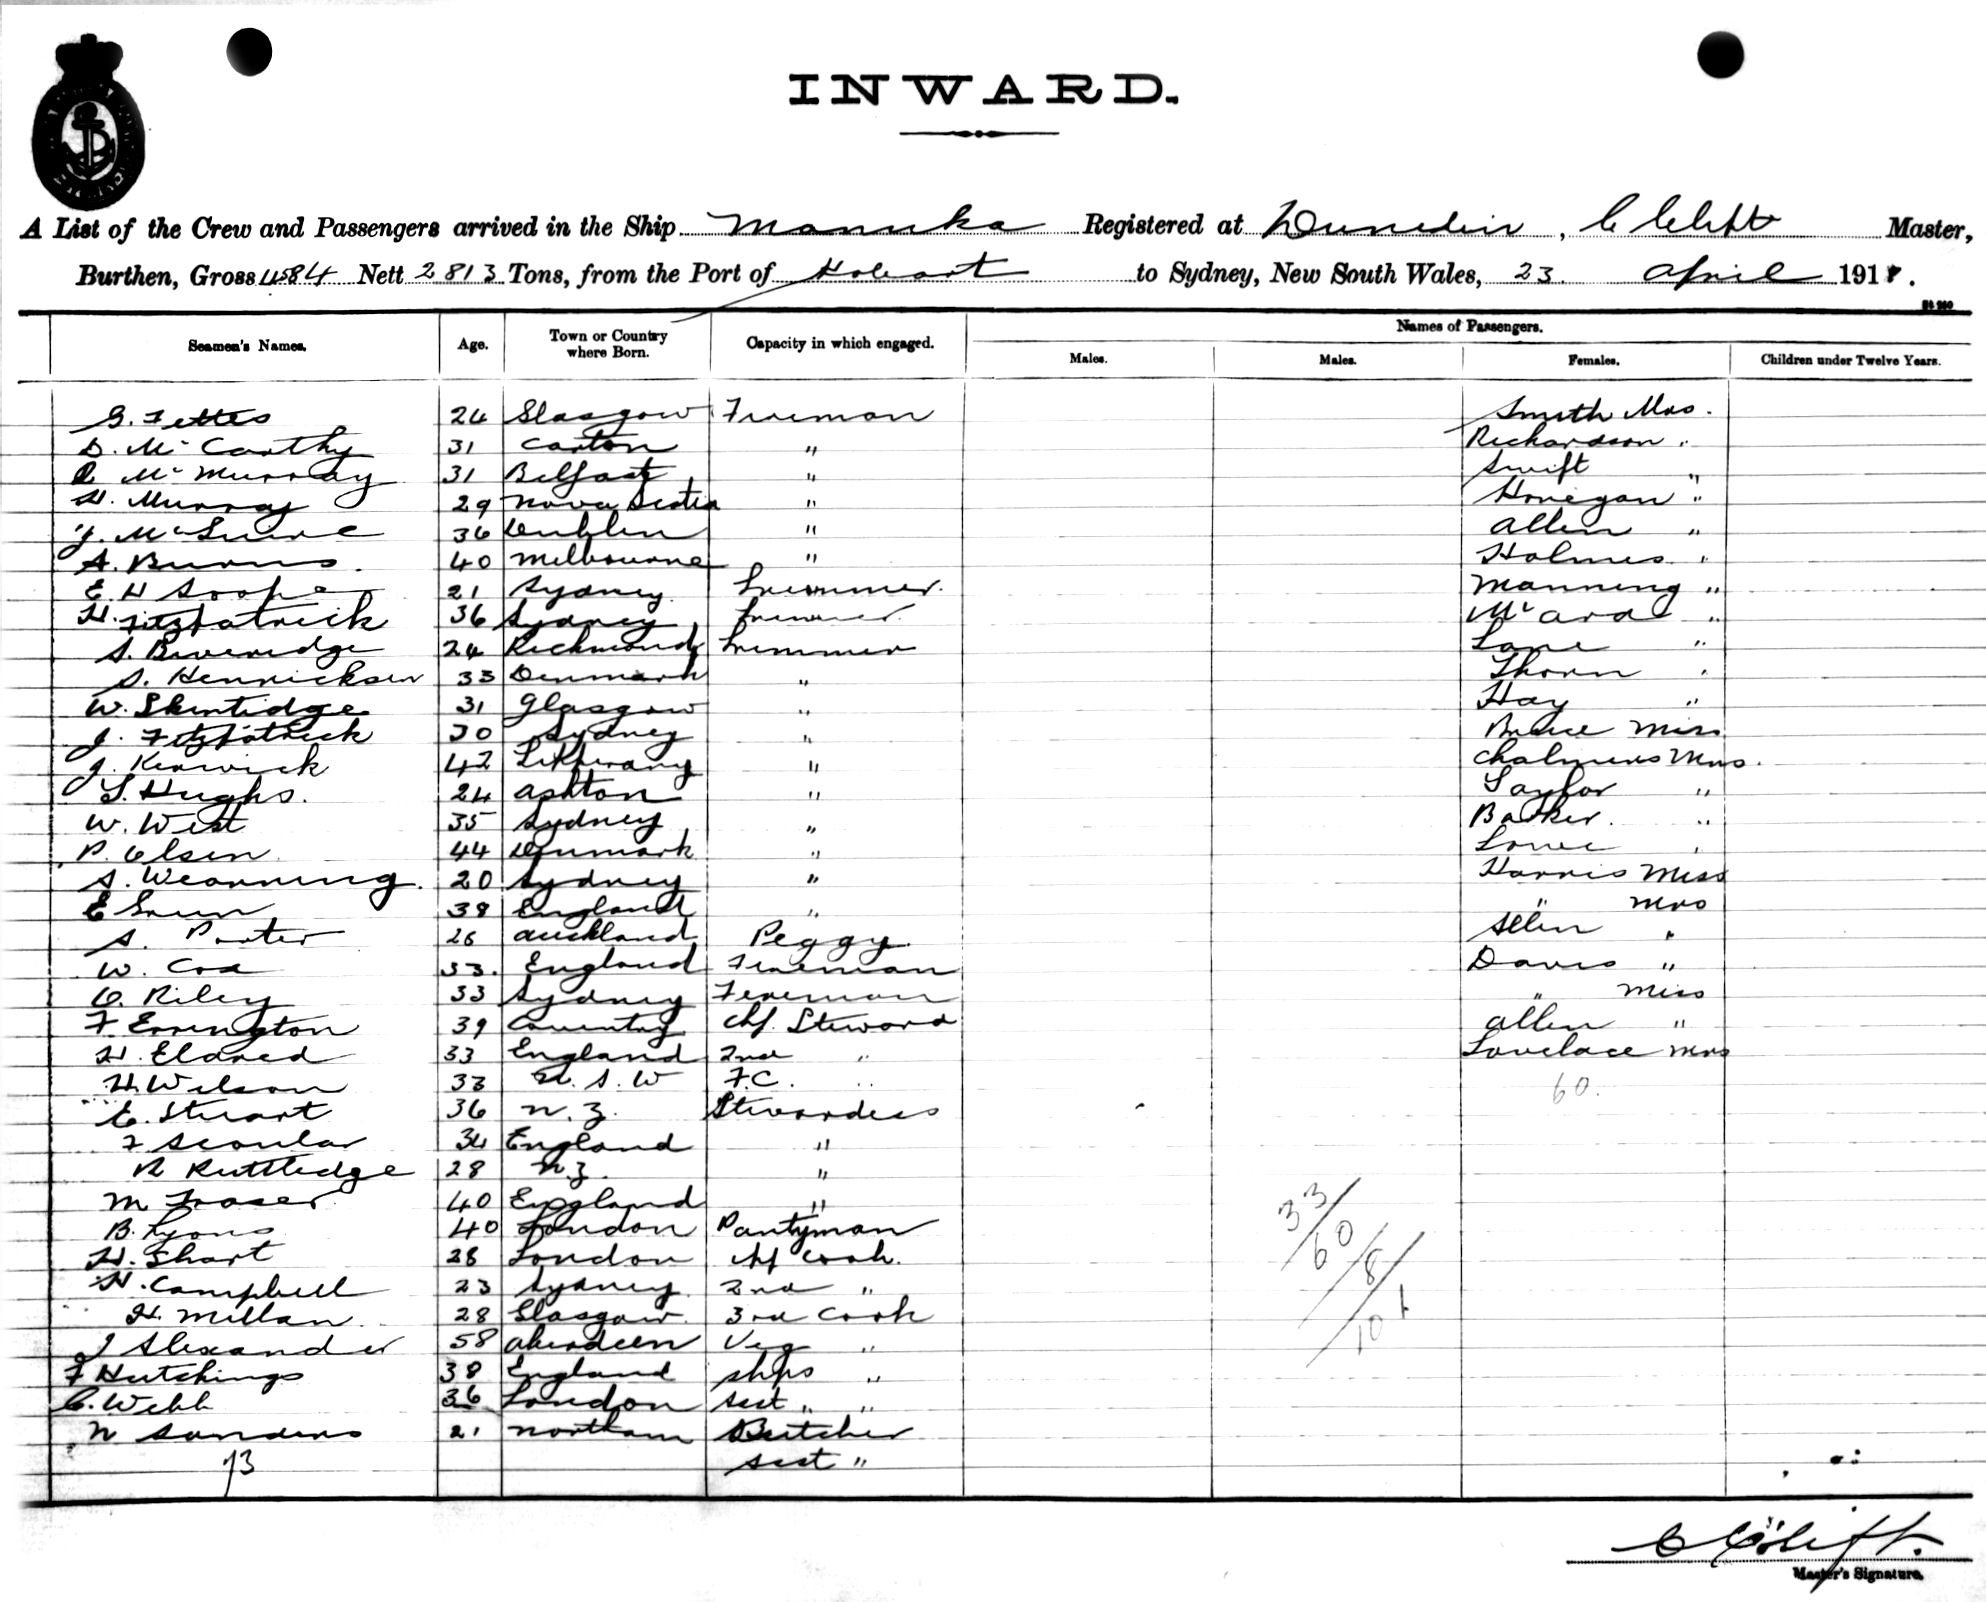 INWARD.
A List of the Crew and Passengers arrived in the Ship Manuka Registered at Dunedin, C Clift Master,
Burthen, Gross 4584 Nett 2813 Tons, from the Port of Hobart to Sydney, New South Wales, 23. April 191 .
Seamen's Names. Age. Town or Country where Born. Capacity in which engaged. Names of Passengers.
Males. Males. Females. Children under Twelve Years.
G. Fettes 24 Glasgow Fireman Smith Mrs.
D. McCarthy 31 " Richardson "
McMurray 31 Belfast " Swift "
H. Murray 29 Nova Scotia " Honegan "
J. McGuire 36 Dublin " Allen "
A. Burns. 40 Melbourne " Holmes "
E. H Soope 21 Sydney Trimmer. Manning "
H. Fitzpatrick 36 Sydney Trimmer. "
S. Beveridge 24 Richmond Trimmer Lane "
S. Henricksen 33 Denmark " Thorn "
W. Skentidge 31 Glasgow " Hay "
J. Fitzpatrick 30 Sydney " Bruce Miss
J. Kerwick 42 " Chalmers Mrs.
Hughs. 24 Ashton " Taylor "
W. West 35 Sydney " Barker. "
P. Olsen 44 Denmark " Lowe "
S. Wearning. 20 Sydney " Harris Miss
E Green 38 England " " Mrs
S. Porter 26 Auckland Peggy. Allen "
W. Cox 33. England Fireman Davis "
O. Riley 33 Sydney Fireman " Miss
F Errington 39 Coventry Chf. Steward Allen "
H. Eldred 33 England 2nd " Lovelace Mrs
H. Wilson 33 N. S. W F.C. " 60.
E. Stuart 36 N. Z. Stewardess
F Scoular 34 England "
R Ruttledge 28 N. Z. "
M Fraser. 40 England "
B. Lyons 40 London Pantryman
H. Short 28 London Chf Cook.
H. Campbell 23 Sydney 2nd "
H. Millan 28 Glasgow 3rd Cook
J Alexander 58 Aberdeen Veg "
F Hutchings 38 England Shps "
C. Webb 36 London Asst " "
N Sanders 21 Northam Butcher
73 Asst "
33/
60/
8/
101
C Clift.
Master's Signature.